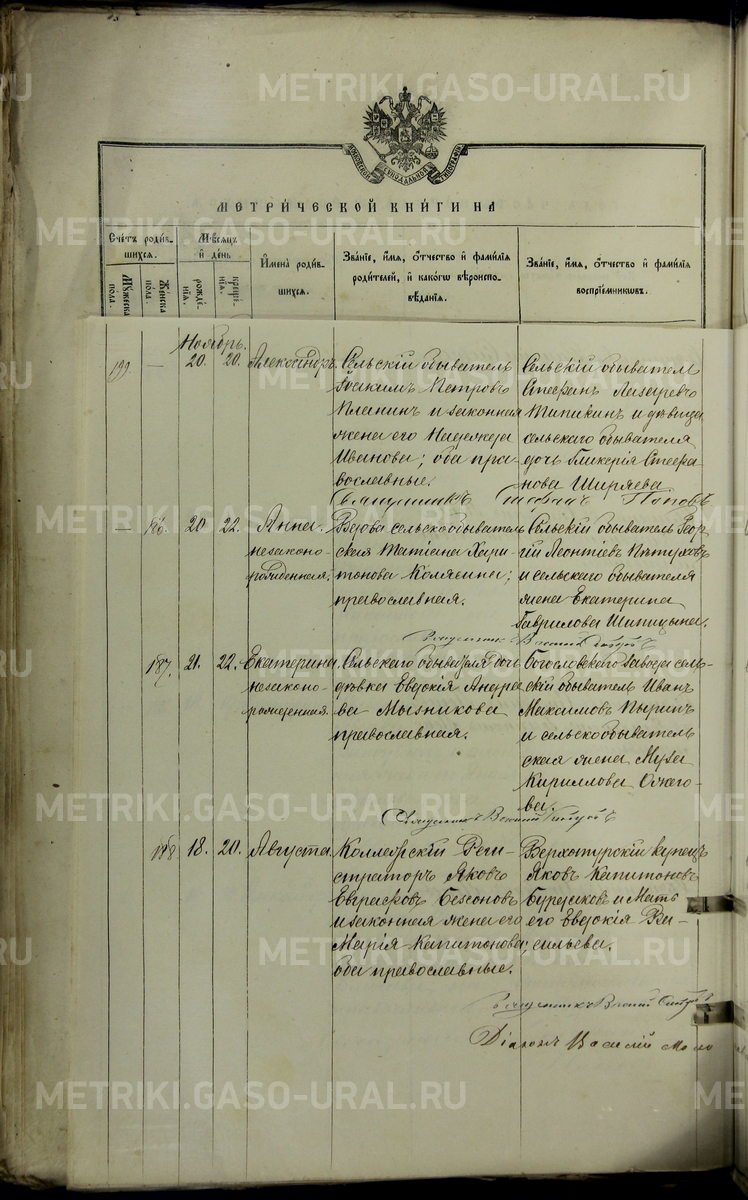 METRIKI.GASO-URAL.RU
МОСКОВСКОЙ СУНОДАЛЬНОЙ ТИПОГРАФІИ
МЕТРИ́ЧЕСКОЙ КНИ́ГИ НА
Сче́тъ роди́в-
шихся.
Мѣ́сяцъ
и҆ де́нь
Му́жеска
по́ла.
Же́нска
по́ла.
рожде́-
нїя.
креще́-
нїя.
И҆мена̀ роди́в-
шихся.
Зва́нїе, и҆́мя, ѻ҆́тчество и҆ фами́лїя
роди́телей, и҆ како́гѡ вѣроиспо-
вѣ́данїя.
Зва́нїе, и҆́мя, ѻ҆́тчество и҆ фами́лїя
воспрїе́мникѡвъ.
Ноябрь.
199. — 20. 20. Александръ. Сельскій обыватель
Іоакимъ Петровъ
и законная
жена его Надежда
Иванова; оба пра-
вославные.
Сельскій обыватель
Стефанъ Лазаревъ
Типикинъ и дѣвица
сельскаго обывателя
дочь Гликерія Стефа-
нова Ширяева
Священникъ Поповъ
— 186. 20 22. Анна
незаконо-
рожденная.
Вдова сельскообыватель
ская Татіана Хари-
тонова Колясина;
православная.
Сельскій обыватель Геор
гій Леонтіевъ Пѣтуховъ
и сельскаго обывателя
жена Екатерина
Гаврилова Шипицына.
Священникъ
187. 21. 22. Екатерина
незаконо-
рожденная.
Сельскаго обывателя
дѣвка Евдокія Андре
ева Мызникова
православная.
Богословскаго завода сель-
скій обыватель Иванъ
Максимовъ Пыринъ
и сельскообыватель
ская жена Муза
Кириллова Ожего-
ва.
Священникъ
188 18. 20. Августа.
Коллежскій Реги-
страторъ Яковъ
Евграфовъ Безсоновъ
и законная жена его
Марія Капитонова;
оба православные.
Верхотурскій купецъ
Яковъ Капитоновъ
Бурдаковъ и Мать
его Евдокія Ва-
сильева.
Священникъ
Діаконъ Василій